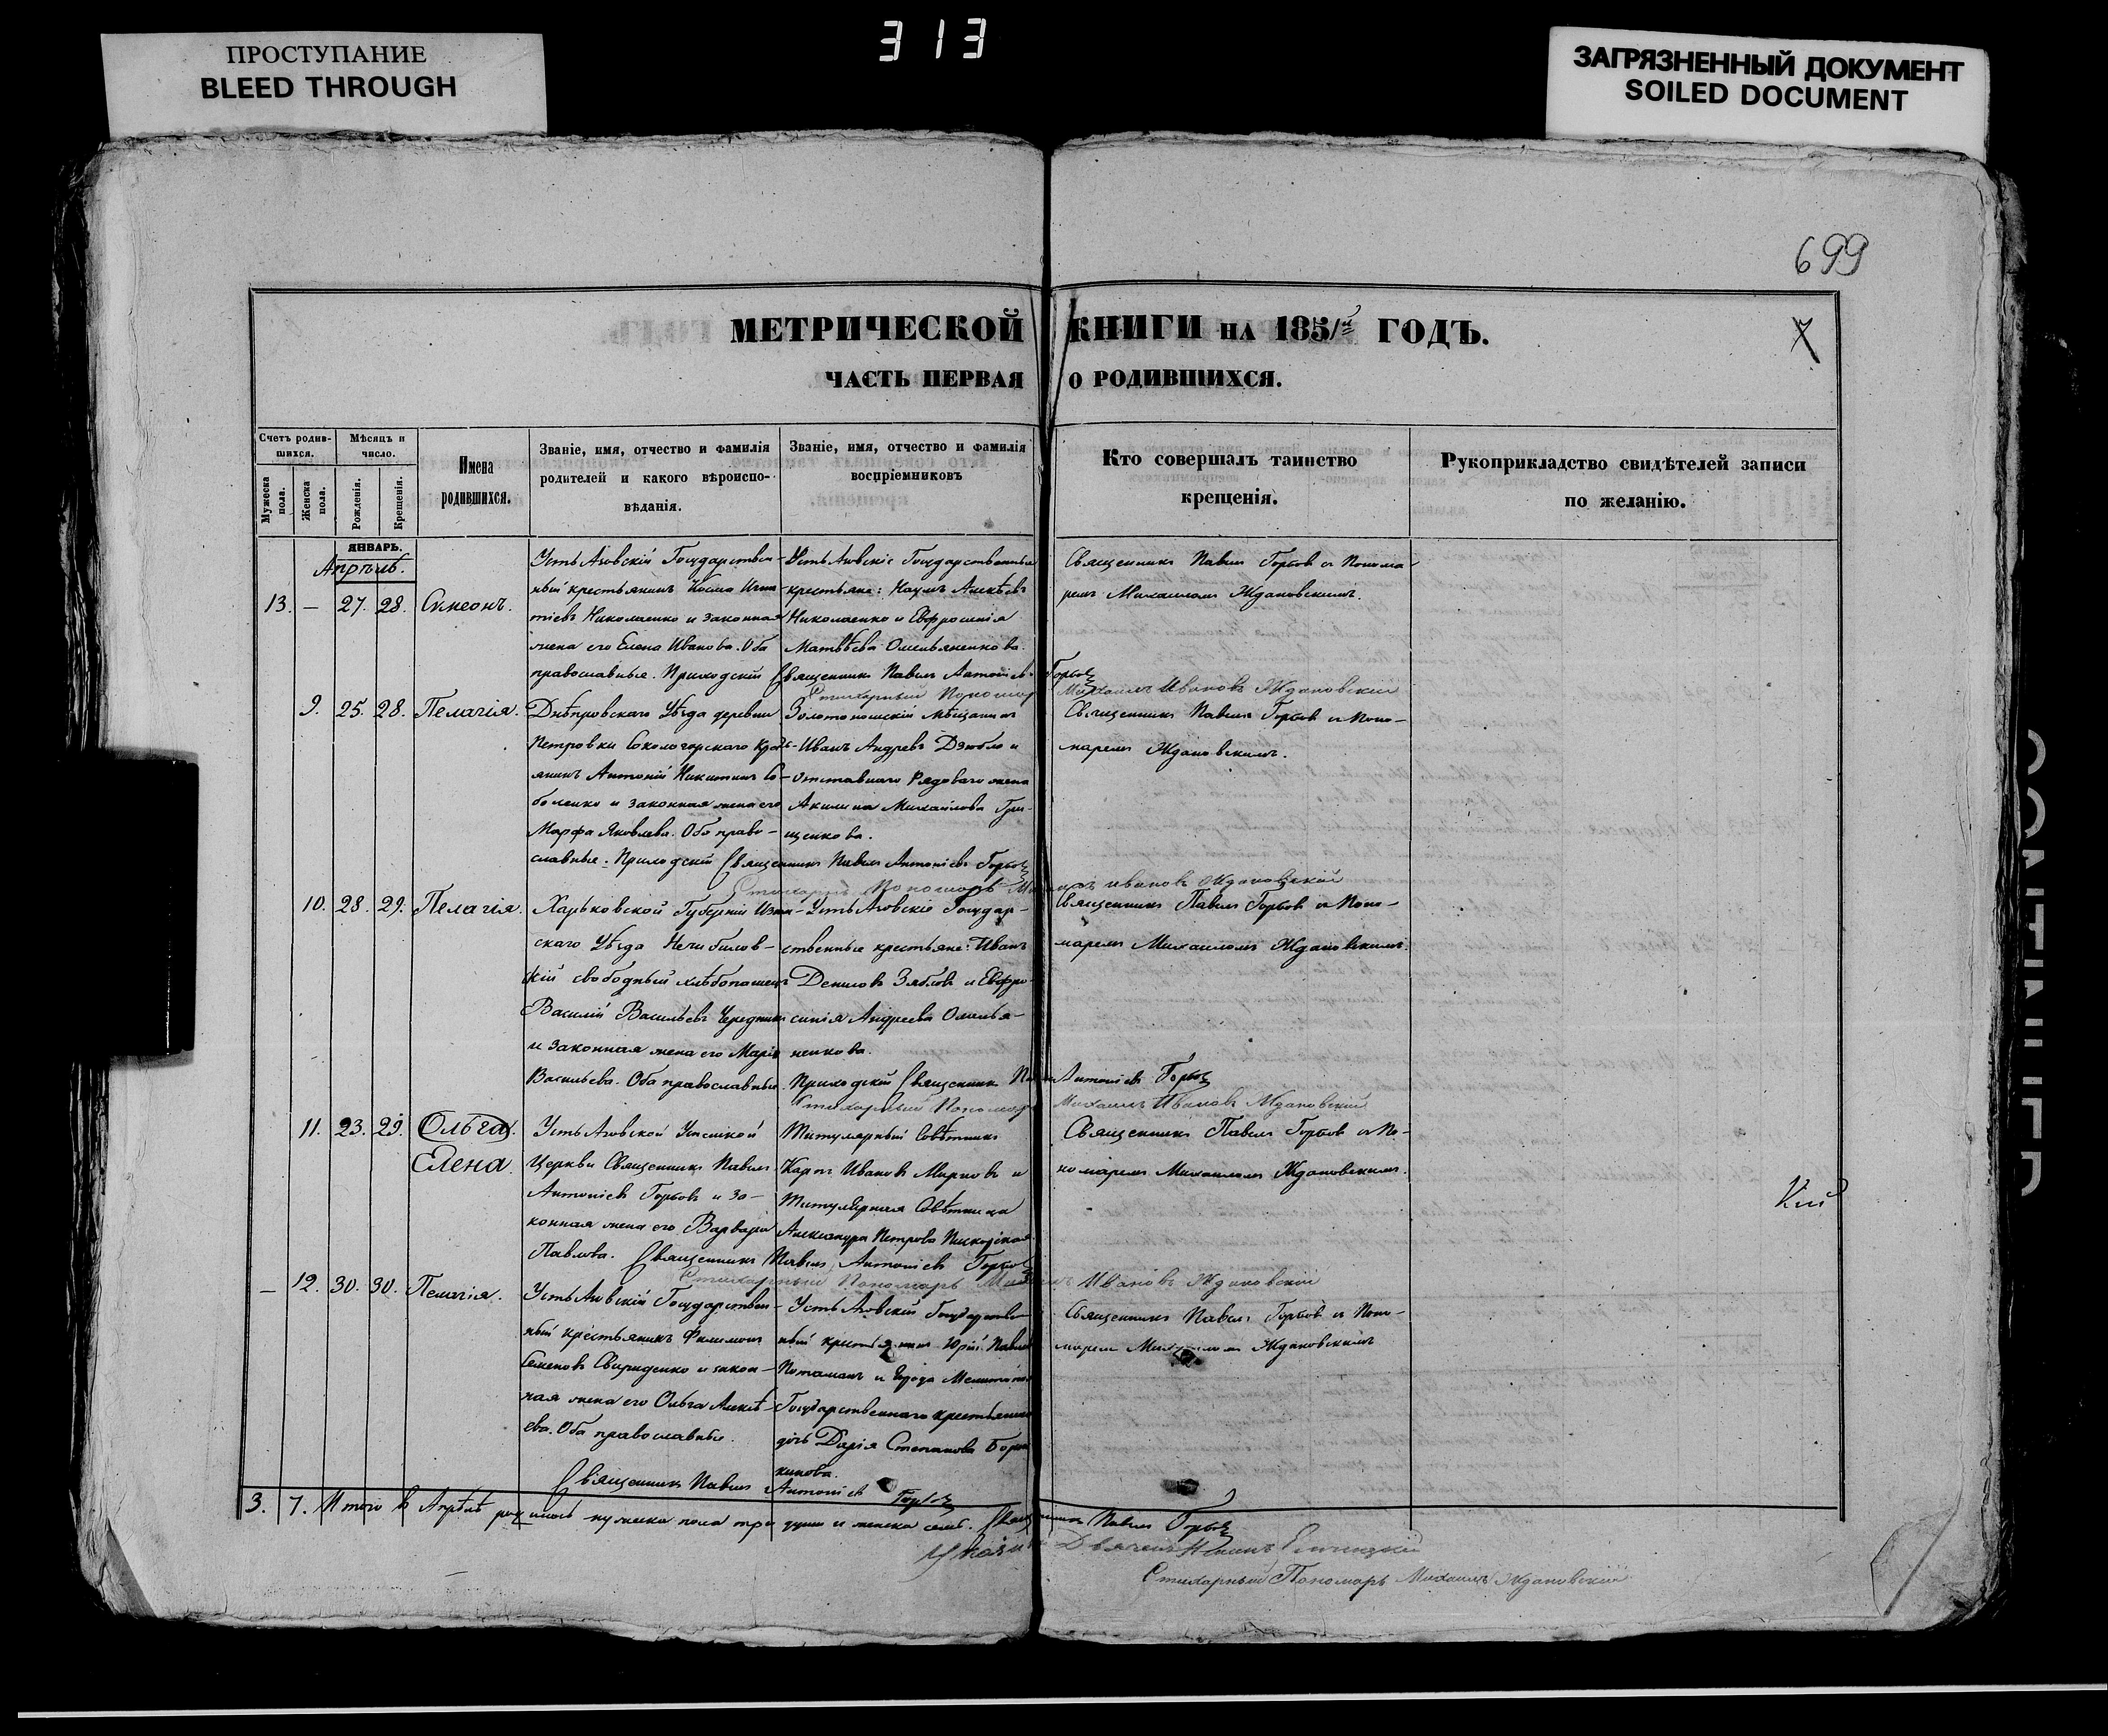 ПРОСТУПАНИЕ
BLEED THROUGH
313
ЗАГРЯЗНЕННЫЙ ДОКУМЕНТ
SOILED DOCUMENT
699
МЕТРИЧЕСКОЙ КНИГИ НА 1851й ГОДЪ.
7
ЧАСТЬ ПЕРВАЯ О РОДИВШИХСЯ.
Счетъ родив-
шихся.
Мужеска пола.
Женска пола.
Мѣсяцъ и
число.
Рожденія.
Крещенія.
Имена
родившихся.
Званіе, имя, отчество и фамилія
родителей и какого вѣроиспо-
вѣданія.
Званіе, имя, отчество и фамилія
воспріемниковъ
Кто совершалъ таинство
крещенія.
Рукоприкладство свидѣтелей записи
по желанію.
ЯНВАРЬ.
Апрѣль.
13. — 27. 28. Симеонъ.
Усть Азовскій Государствен-
ный крестьянинъ Косма Игна-
тіевъ Николаенко и законная
жена его Елена Иванова. Оба
православные. Приходскій Священникъ Павелъ Антоніевъ Горбов
Усть Азовскіе Государственные
крестьяне: Наумъ Алексѣевъ
Николаенко и Евфросинія
Матвѣева Омельяненкова.
Священникъ Павелъ Горбов съ Понома-
ремъ Михаиломъ Ждановскимъ.
Стихарный Пономарь Михаилъ Ивановъ Ждановскій
9. 25. 28. Пелагія.
Днѣпровскаго Уѣзда деревни
Петровки Сокологорскаго Кресть-
янинъ Антоній Никитинъ Со-
боленко и законная жена его
Марфа Яковлева. Оба право-
славные. Приходскій Священникъ Павелъ Антоніевъ Горбов
Золотоношскій мѣщанинъ
Иванъ Андреевъ Дзюбло и
отставнаго Рядоваго жена
Акилина Михайлова Гри-
щенкова.
Священникъ Павелъ Горбов съ Поно-
маремъ Ждановскимъ.
Стихарный Пономарь Михаилъ Ивановъ Ждановскій
10. 28. 29. Пелагія.
Харьковской Губерніи Изюм-
скаго Уѣзда
свободный хлѣбопашецъ
Василій Васильевъ Чередник
и законная жена его Марія
Васильева. Оба православные. Приходскій Священникъ Павелъ Антоніевъ Горбов
Усть Азовскіе Государ-
ственные крестьяне: Иванъ
Зяблов и Евфро-
синія Андреева Омелья-
ненкова.
Священникъ Павелъ Горбов съ Поно-
маремъ Михаиломъ Ждановскимъ.
Стихарный Пономарь Михаилъ Ивановъ Ждановскій
11. 23. 29. Ольга.
Елена.
Усть Азовской Успенской
Церкви Священникъ Павелъ
Антоніевъ Горбовъ и за-
конная жена его Варвара
Павлова. Священникъ Павелъ Антоніевъ Горбов
Титулярный Совѣтникъ
Карпъ Ивановъ Марковъ и
Титулярная Совѣтница
Александра Петрова
Священникъ Павелъ Горбов съ По-
номаремъ Михаиломъ Ждановскимъ.
Стихарный Пономарь Михаилъ Ивановъ Ждановскій
— 12. 30. 30. Пелагія.
Усть Азовскій Государствен-
ный крестьянинъ Филимонъ
Семеновъ Свириденко и закон-
ная жена его Ольга Алексѣ-
ева. Оба православные.
Священникъ Павелъ Антоніев Горбов
Усть Азовскій Государствен-
ный крестьянинъ Юрій Павлов
Потаманъ и Города Мелитополя
Государственнаго крестьянина
дочь Дарія Степанова
Священникъ Павелъ Горбов съ Поно-
маремъ Михаиломъ Ждановскимъ
3. 7. Итого въ Апрѣлѣ родилось мужеска пола три души и женска семь. Священникъ Павелъ Горбов
Стихарный Пономарь Михаилъ Ждановскій